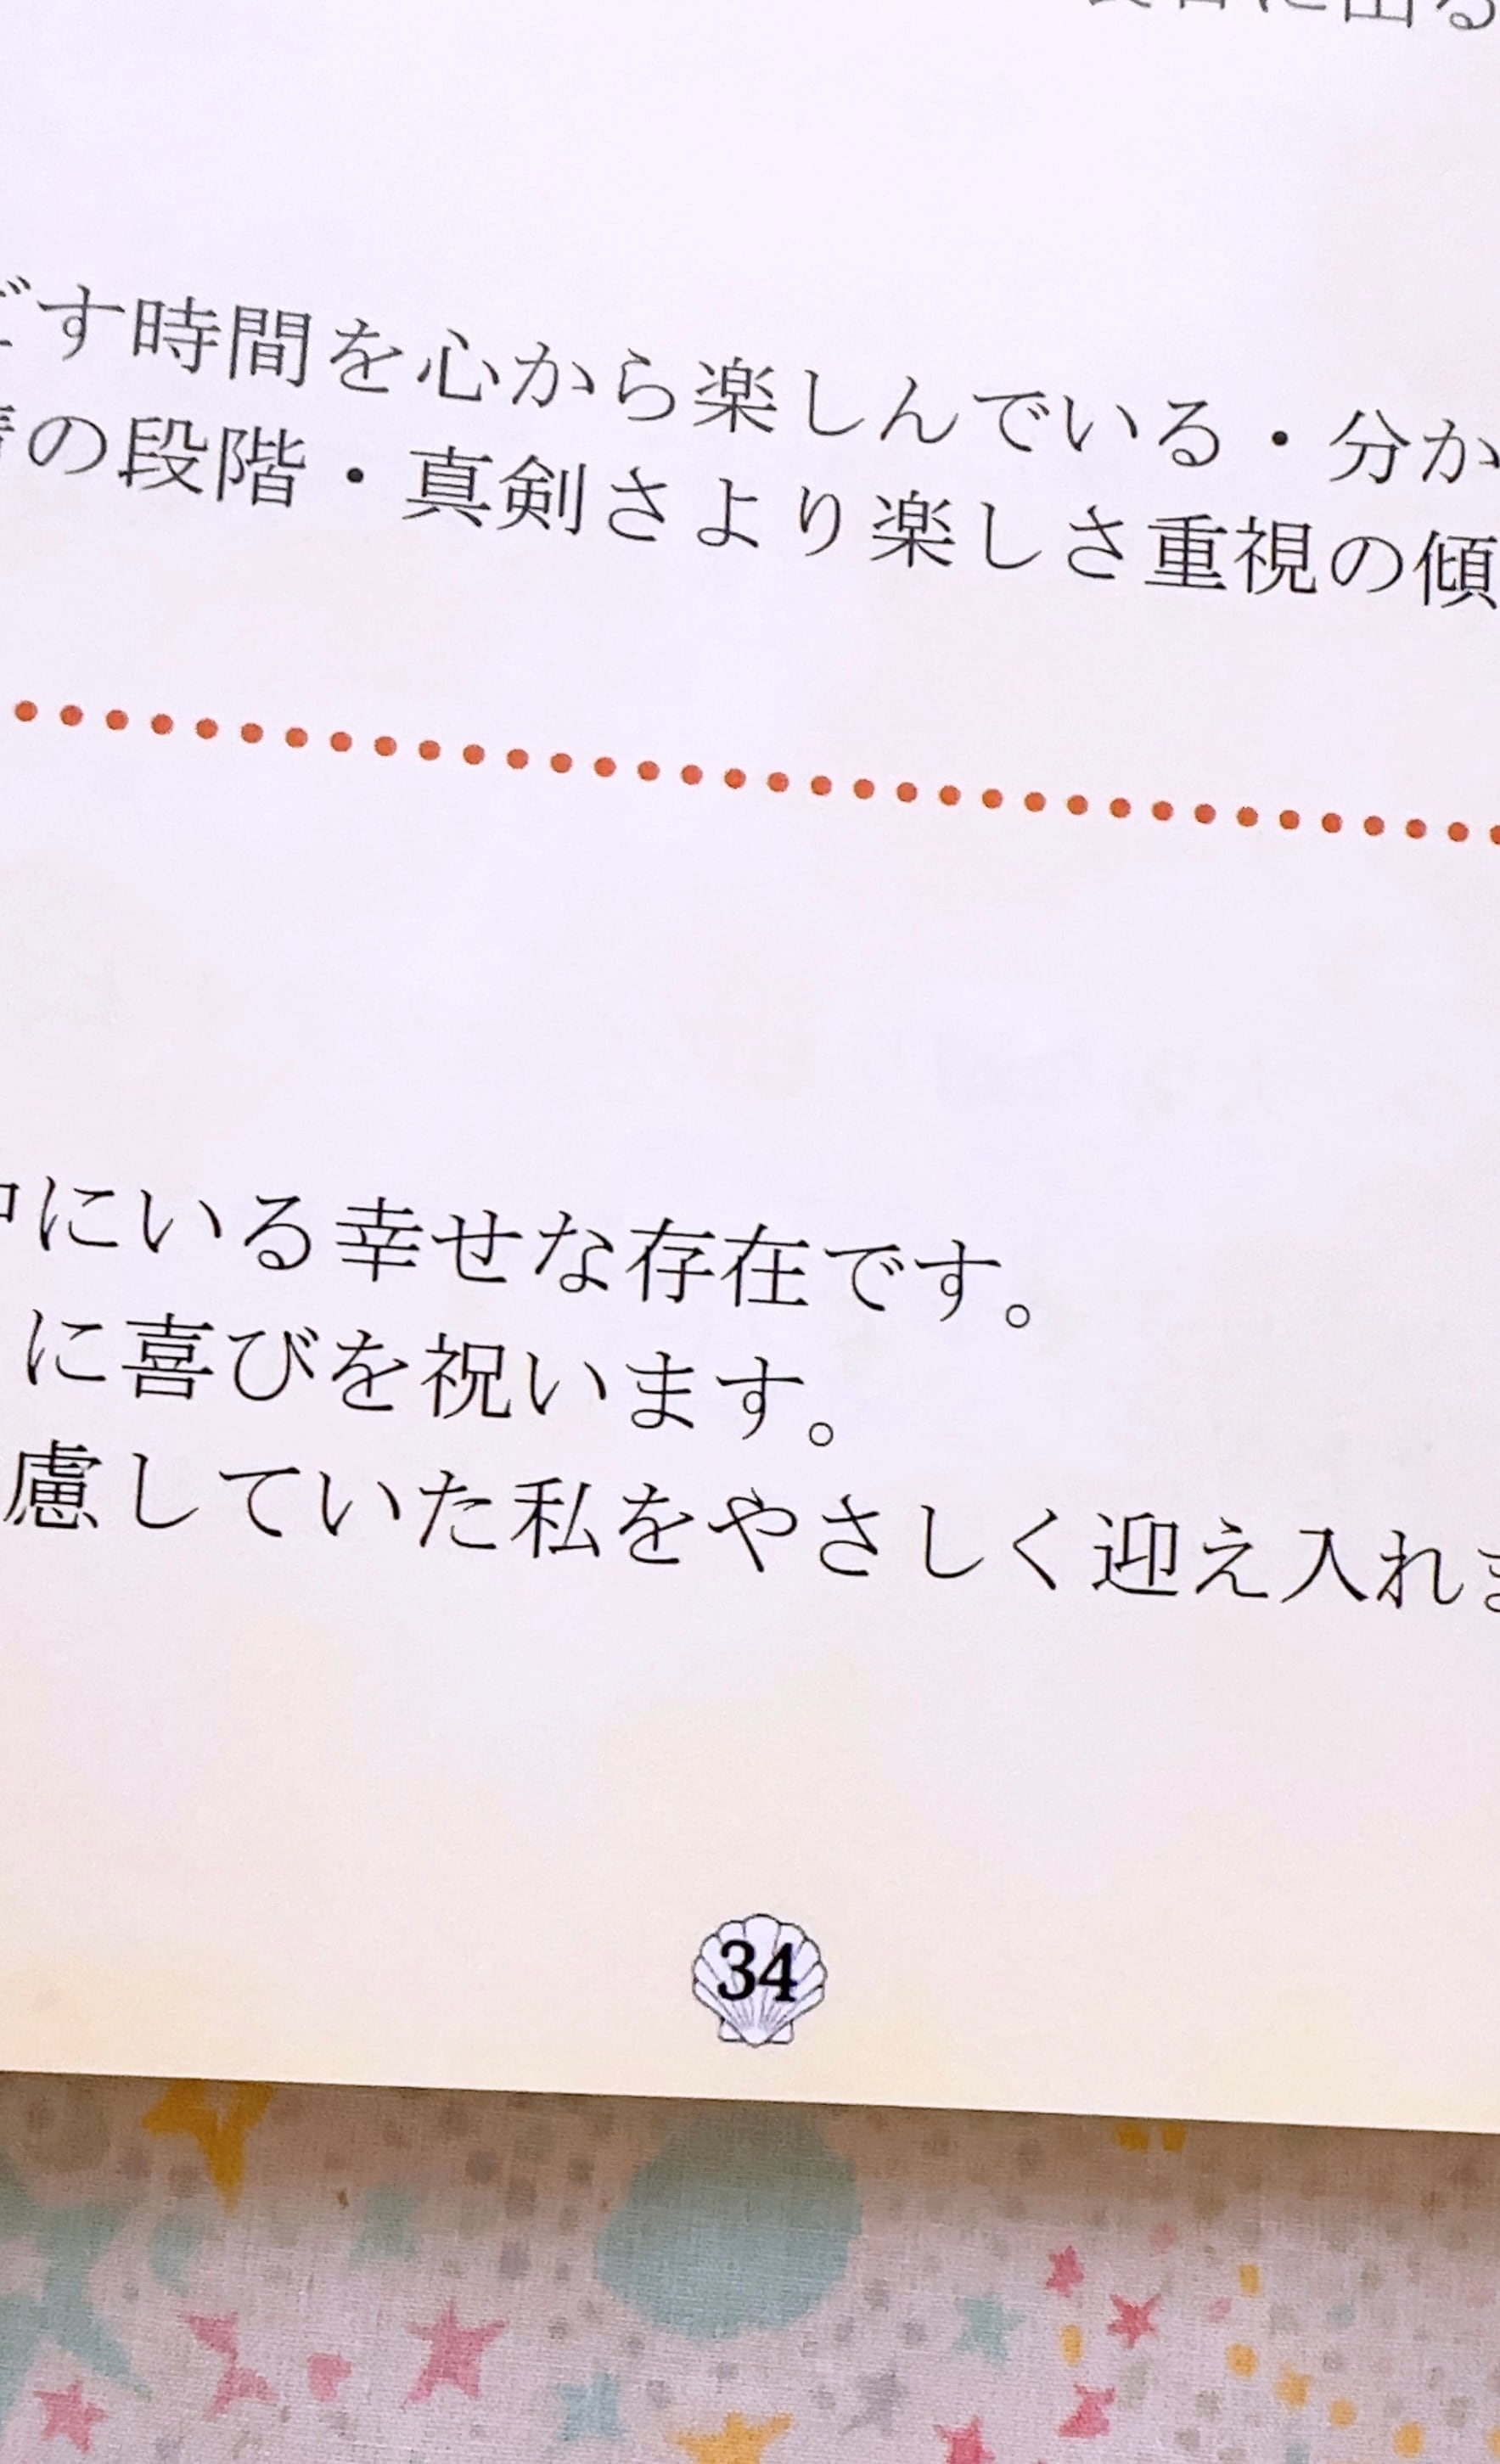 に出る
ごす時間を心から楽しんでいる・分か
の段階・真剣さより楽しさ重視の傾
中にいる幸せな存在です。
に喜びを祝います。
慮していた私をやさしく迎え入れま
34